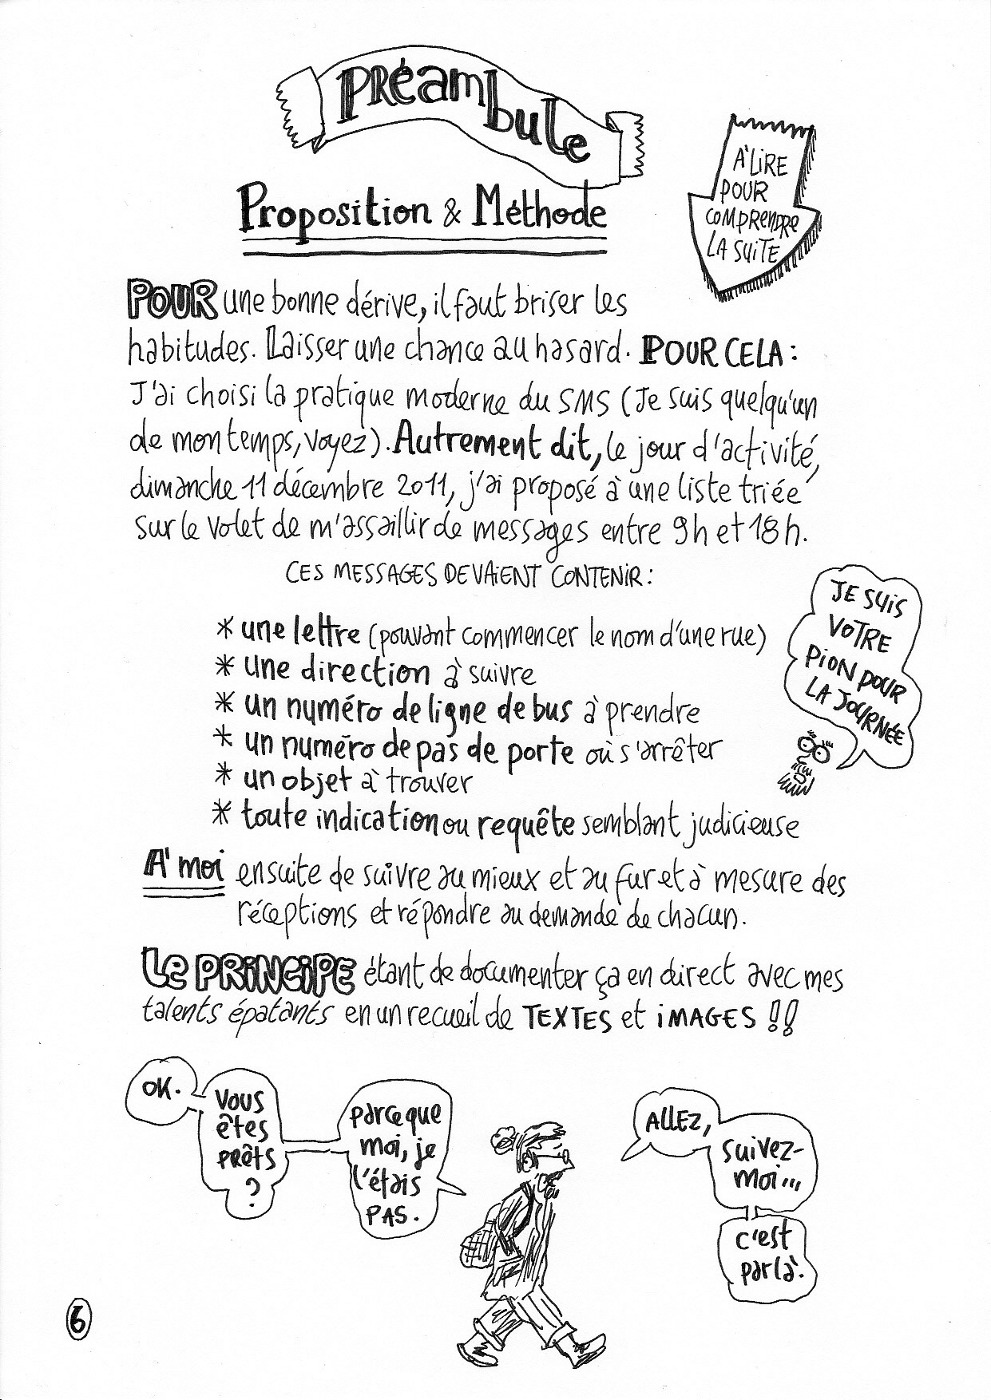 PRéambule
Proposition & Méthode
A' LIRE
POUR
COMPRENDRE
LA SUITE
POUR une bonne dérive, il faut briser les
habitudes. Laisser une chance au hasard. POUR CELA :
J'ai choisi la pratique moderne du SMS (Je suis quelqu'un
de mon temps, voyez). Autrement dit, le jour d'activité,
dimanche 11 décembre 2011, j'ai proposé à une liste triée
sur le volet de m'assaillir de messages entre 9h et 18h.
CES MESSAGES DEVAIENT CONTENIR :
* une lettre (pouvant commencer le nom d'une rue)
* une direction à suivre
* un numéro de ligne de bus à prendre
* un numéro de pas de porte où s'arrêter
* un objet à trouver
* toute indication ou requête semblant judicieuse
JE SUIS
VOTRE
PION POUR
LA JOURNÉE
A' moi ensuite de suivre au mieux et au fur et à mesure des
réceptions et répondre au demande de chacun.
Le PRINCIPE étant de documenter ça en direct avec mes
talents épatants en un recueil de TEXTES et IMAGES !!
OK.
VOUS
êtes
PRêts
?
parce que
moi, je
l'étais
PAS.
ALLEZ,
suivez-
moi...
c'est
par là.
6